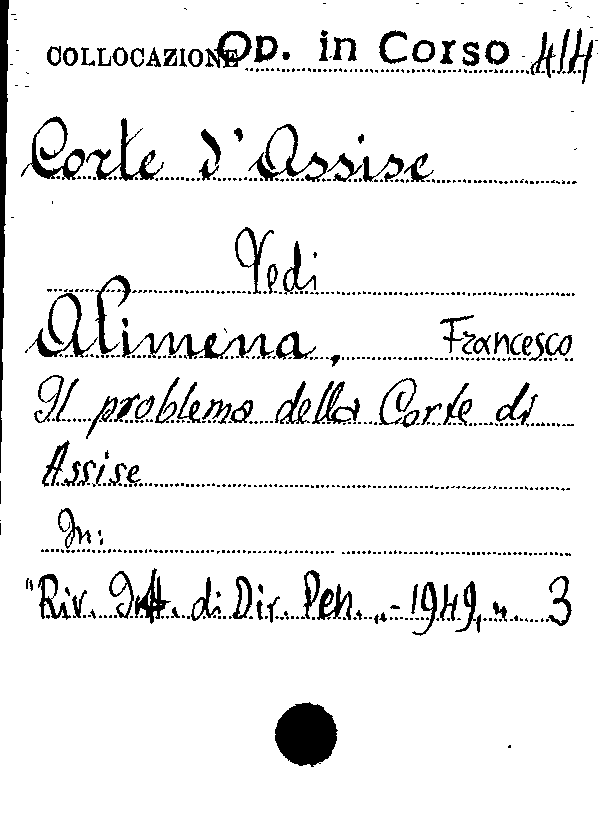 COLLOCAZIONE Op. in Corso 414
Corte d'Assise
Vedi
Alimena, Francesco
Il problema della Corte di
Assise
In:
"Riv. Itt. di Dir. Pen. „ - 1949, n. 3